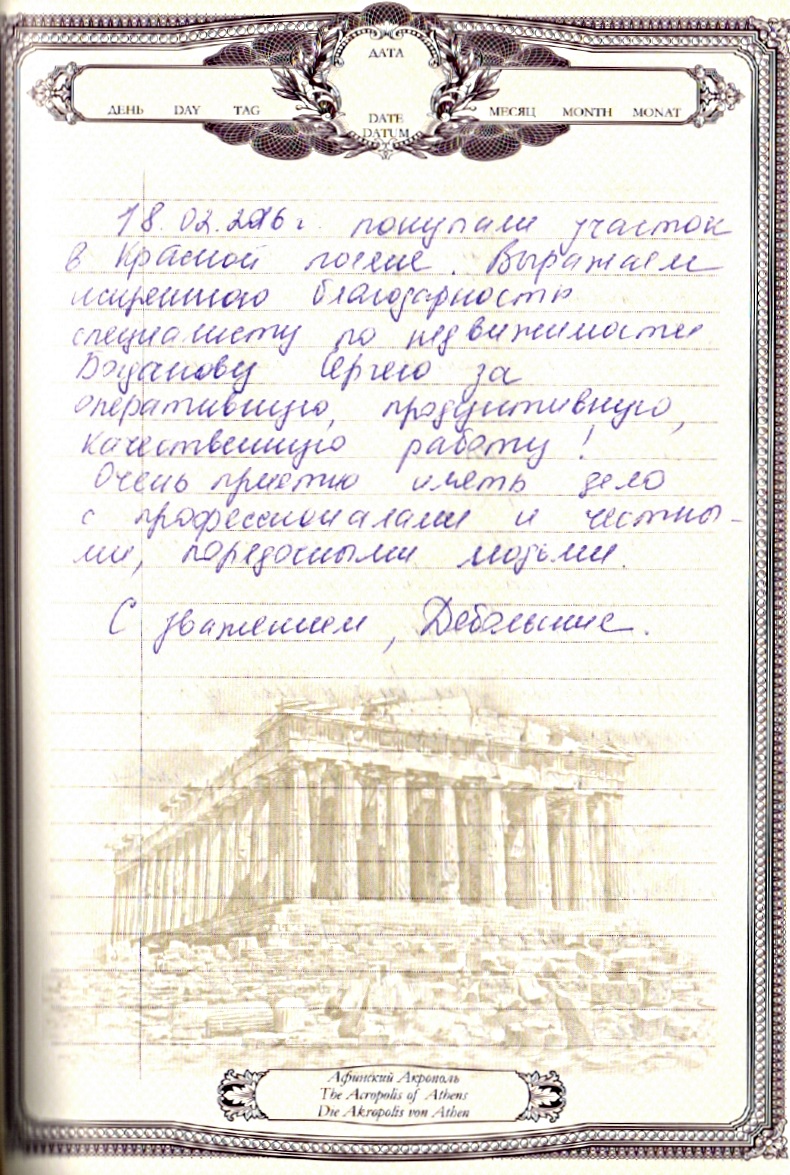 ДАТА
ДЕНЬ DAY TAG
DATE
DATUM
МЕСЯЦ MONTH MONAT
18.02.2016 г. покупали участок
в Красной поляне. Выражаем
искреннюю благодарность
специалисту по недвижимости
Богданову Сергею за
оперативную, продуктивную,
качественную работу!
Очень приятно иметь дело
с профессионалами и честны-
ми, порядочными людьми.
С уважением,
Афинский Акрополь
The Acropolis of Athens
Die Akropolis von Athen